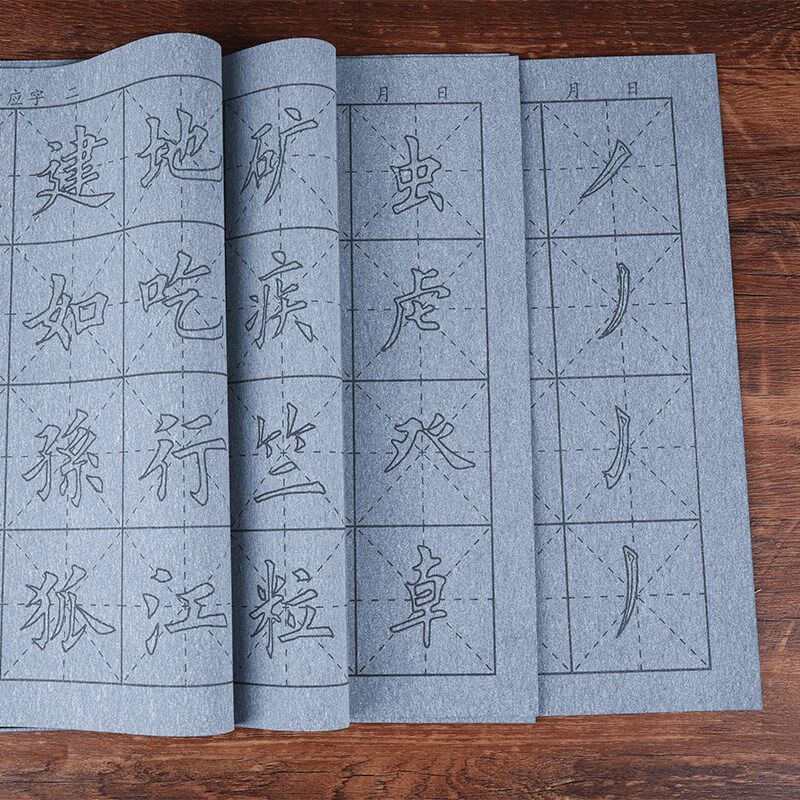 应字 二
月 日
月 日
建 地 矿 虫 丿
如 吃 疾 虍 丿
孫 行 竺 癶 丿
狐 江 粒 丿